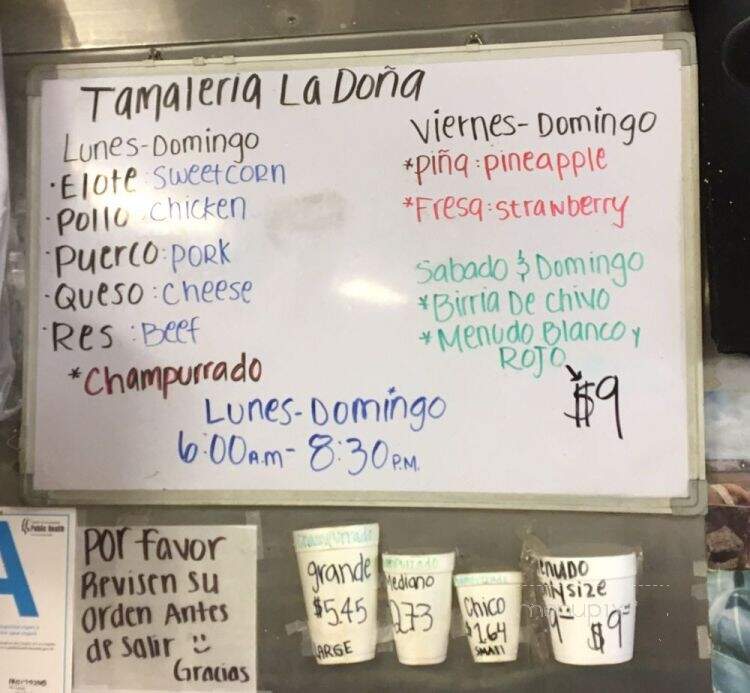 Tamaleria La Doña
Lunes-Domingo
·Elote:Sweetcorn
·Pollo:chicken
·Puerco:PORK
·Queso:Cheese
·Res:Beef
*Champurrado
Viernes-Domingo
*piña:pineapple
*Fresa:strawberry
Sabado & Domingo
*Birria De chivo
*Menudo Blanco y
ROJO
$9
Lunes-Domingo
6:00A.M-8:30P.M.
Public Health
A
Por favor
Revisen su
orden Antes
de salir
Gracias
grande
$5.45
LARGE
Mediano
2.73
Chico
$1.64
SMALL
$9